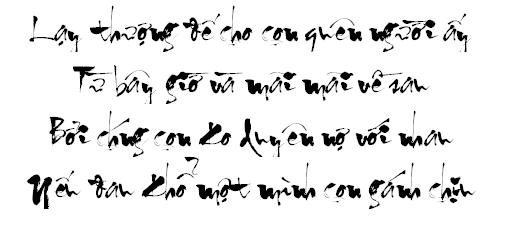 Lạy thượng đế cho con quên người ấy
Từ bây giờ và mãi mãi về sau
Bởi chúng con ko duyên nợ với nhau
Nến đau khổ một mình con gánh chịu